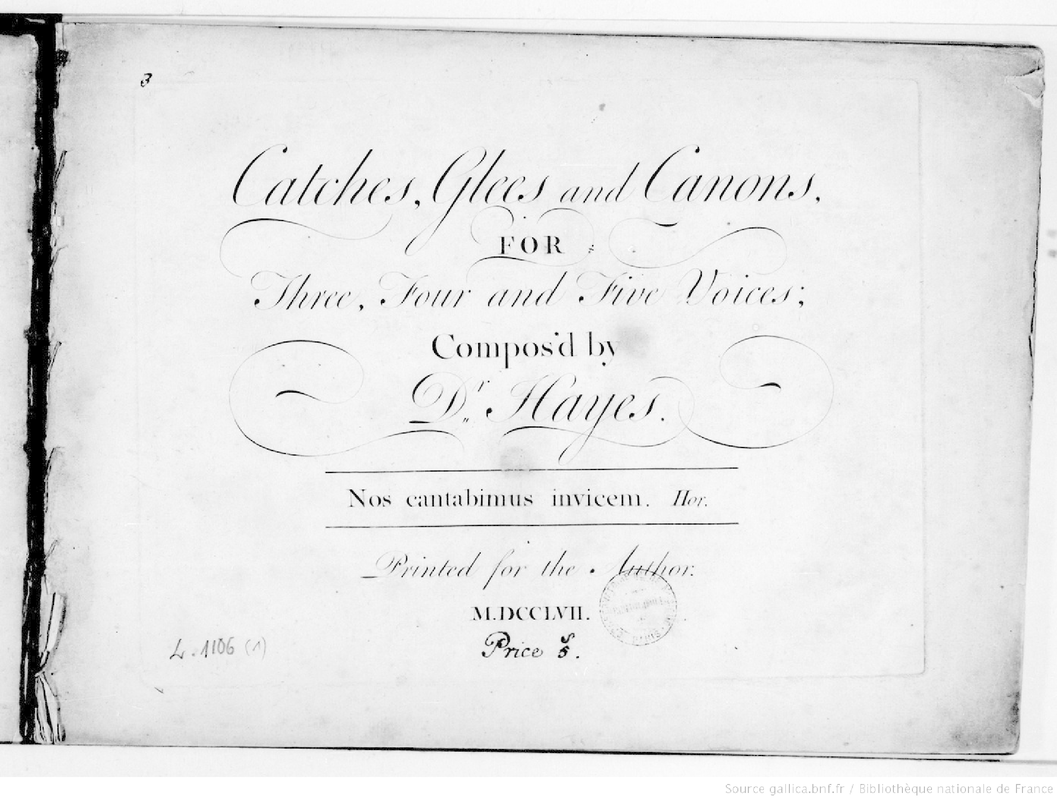 3
Catches, Glees and Canons,
FOR
Three, Four and Five Voices;
Compos'd by
Dr. Hayes.
Nos cantabimus invicem. Hor.
Printed for the Author.
M.DCCLVII.
Price 5s.
L.1106 (1)
Source gallica.bnf.fr / Bibliothèque nationale de France